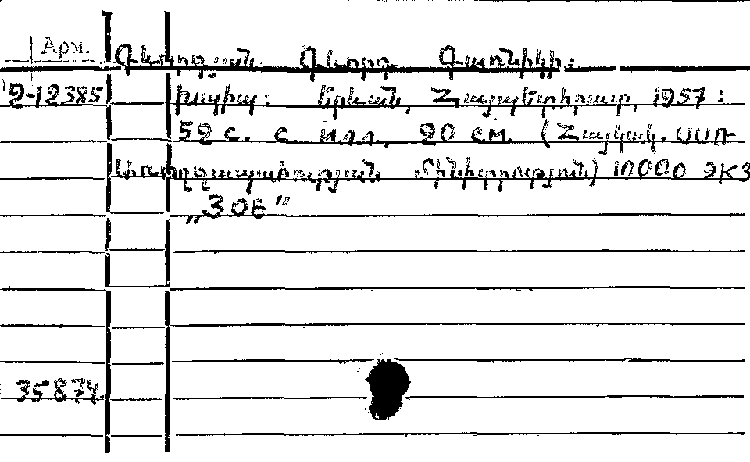 Арм.
Գևորգյան Գևորգ Գառնիկի:
2-12385 Խպիպ: Երևան, Հայպետհրատ, 1957:
52 с. с илл., 20 см. (Հայկակ. ՍՍՌ
Առողջապահության Մինիստրություն) 10000 экз
„Зоб"
35874